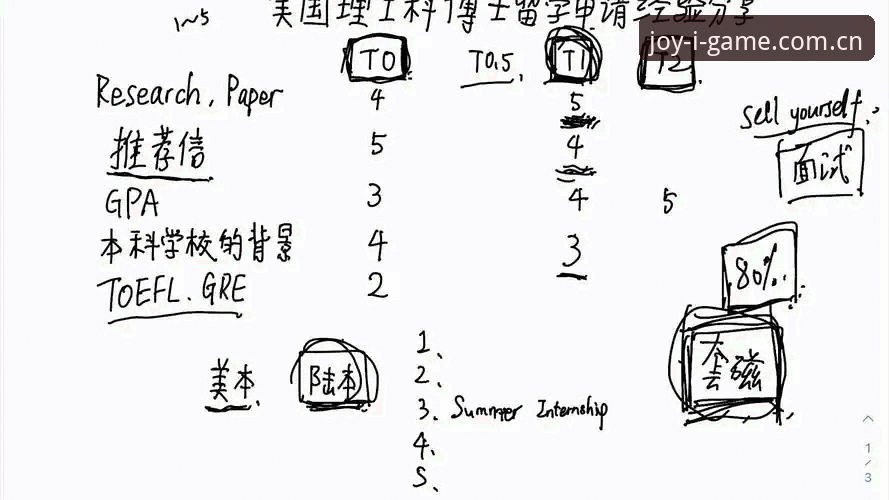 美国理工科博士留学申请经验分享
1~5
joy-i-game.com.cn
T0 T0.5 T1 T2
Research, Paper 4 5
推荐信 5 4
GPA 3 4 5
本科学校的背景 4 3
TOEFL. GRE 2
sell yourself
面试
80%
套磁
美本 陆本
1、
2、
3、Summer Internship
4、
5、
1/3